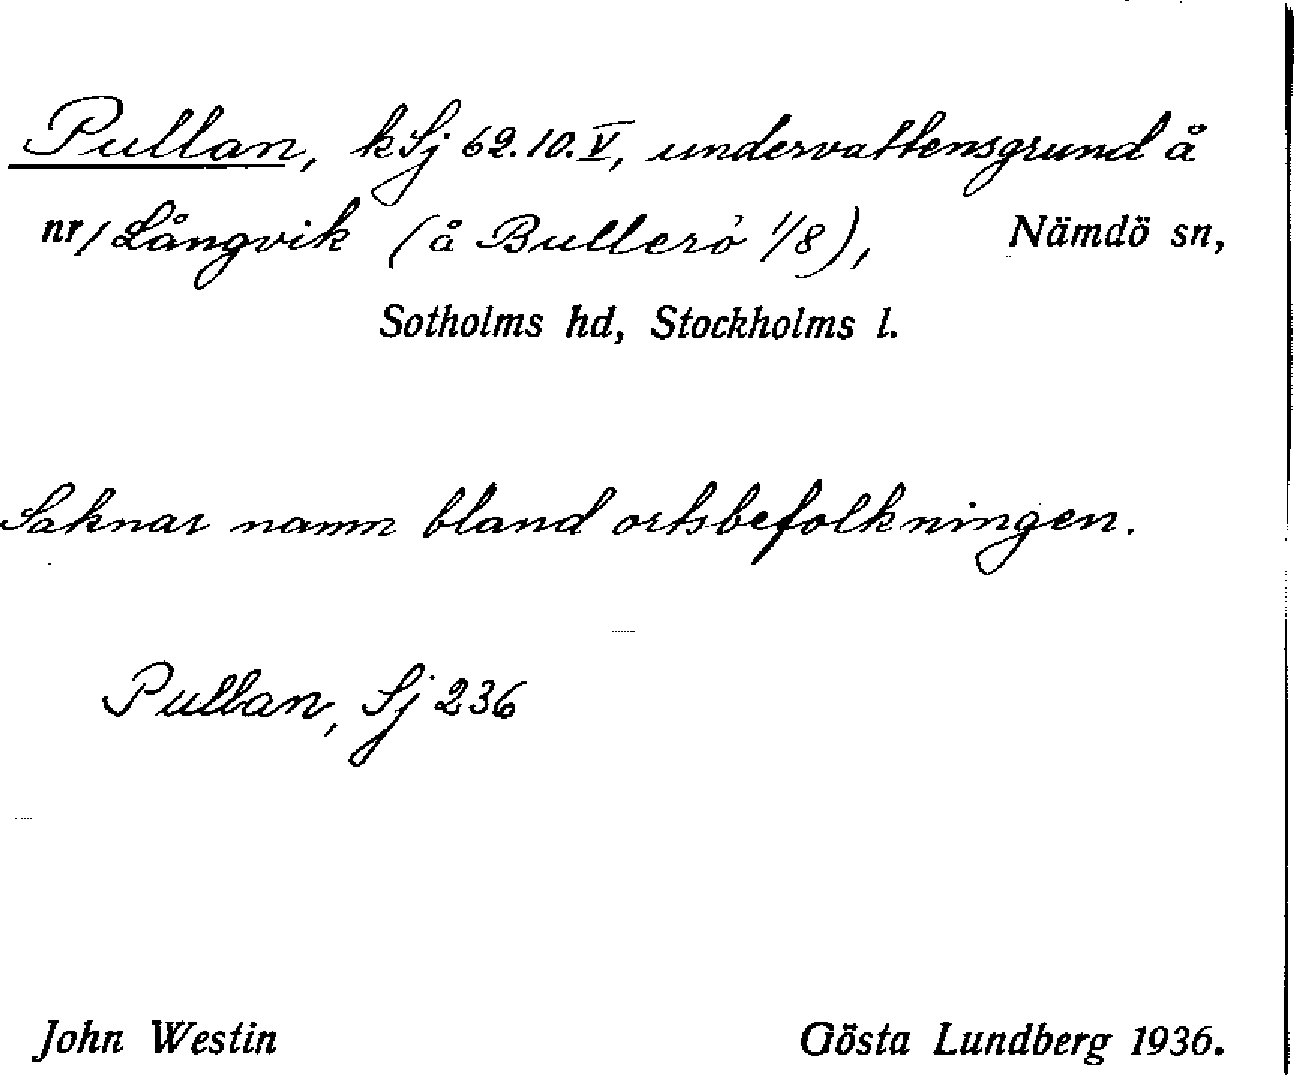 Pullan, kSj 62.10.V, undervattensgrund å
nr/Långvik (å Bullerö 1/8), Nämdö sn,
Sotholms hd, Stockholms l.
Saknar namn bland ortsbefolkningen.
Pullan, Sj 236
John Westin Gösta Lundberg 1936.